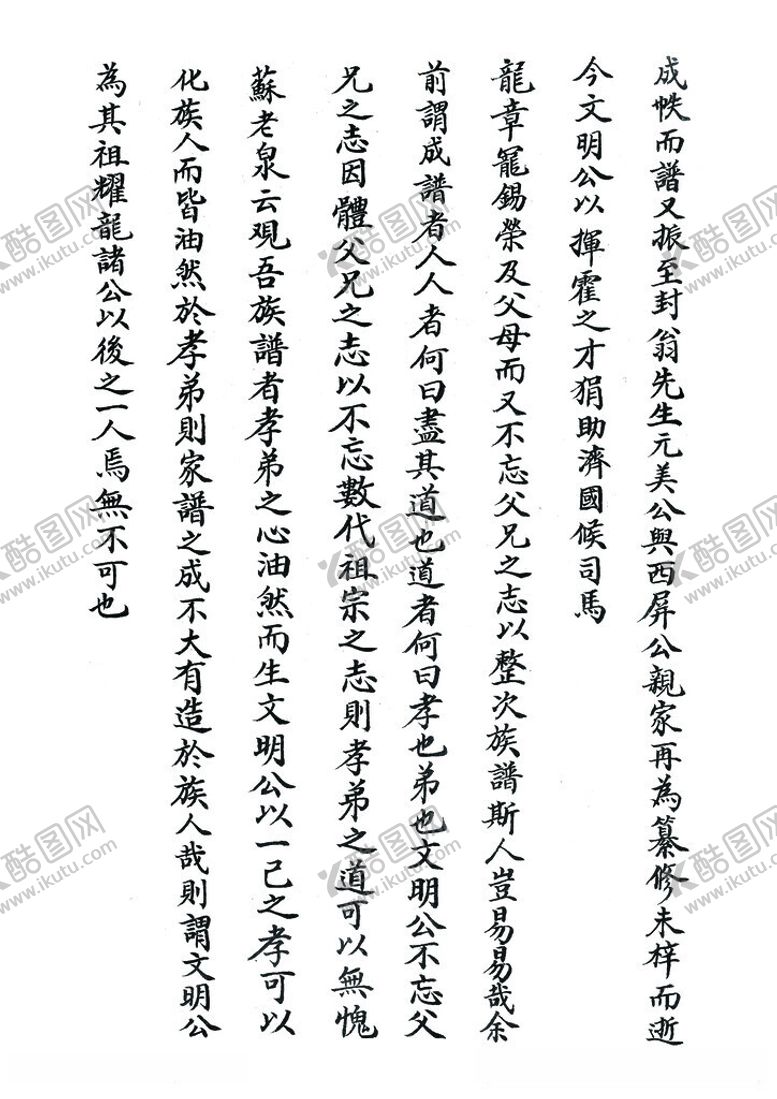 成帙而譜又振至封翁先生元美公與西屏公親家再為纂修未梓而逝
今文明公以揮霍之才狷助濟國候司馬
龍章寵錫榮及父母而又不忘父兄之志以整次族譜斯人豈易易哉余
前謂成譜者人人者何曰盡其道也道者何曰孝也弟也文明公不忘父
兄之志因體父兄之志以不忘數代祖宗之志則孝弟之道可以無愧
蘇老泉云观吾族譜者孝弟之心油然而生文明公以一己之孝可以
化族人而皆油然於孝弟則家譜之成不大有造於族人哉則謂文明公
為其祖耀龍諸公以後之一人焉無不可也
酷图网
www.ikutu.com